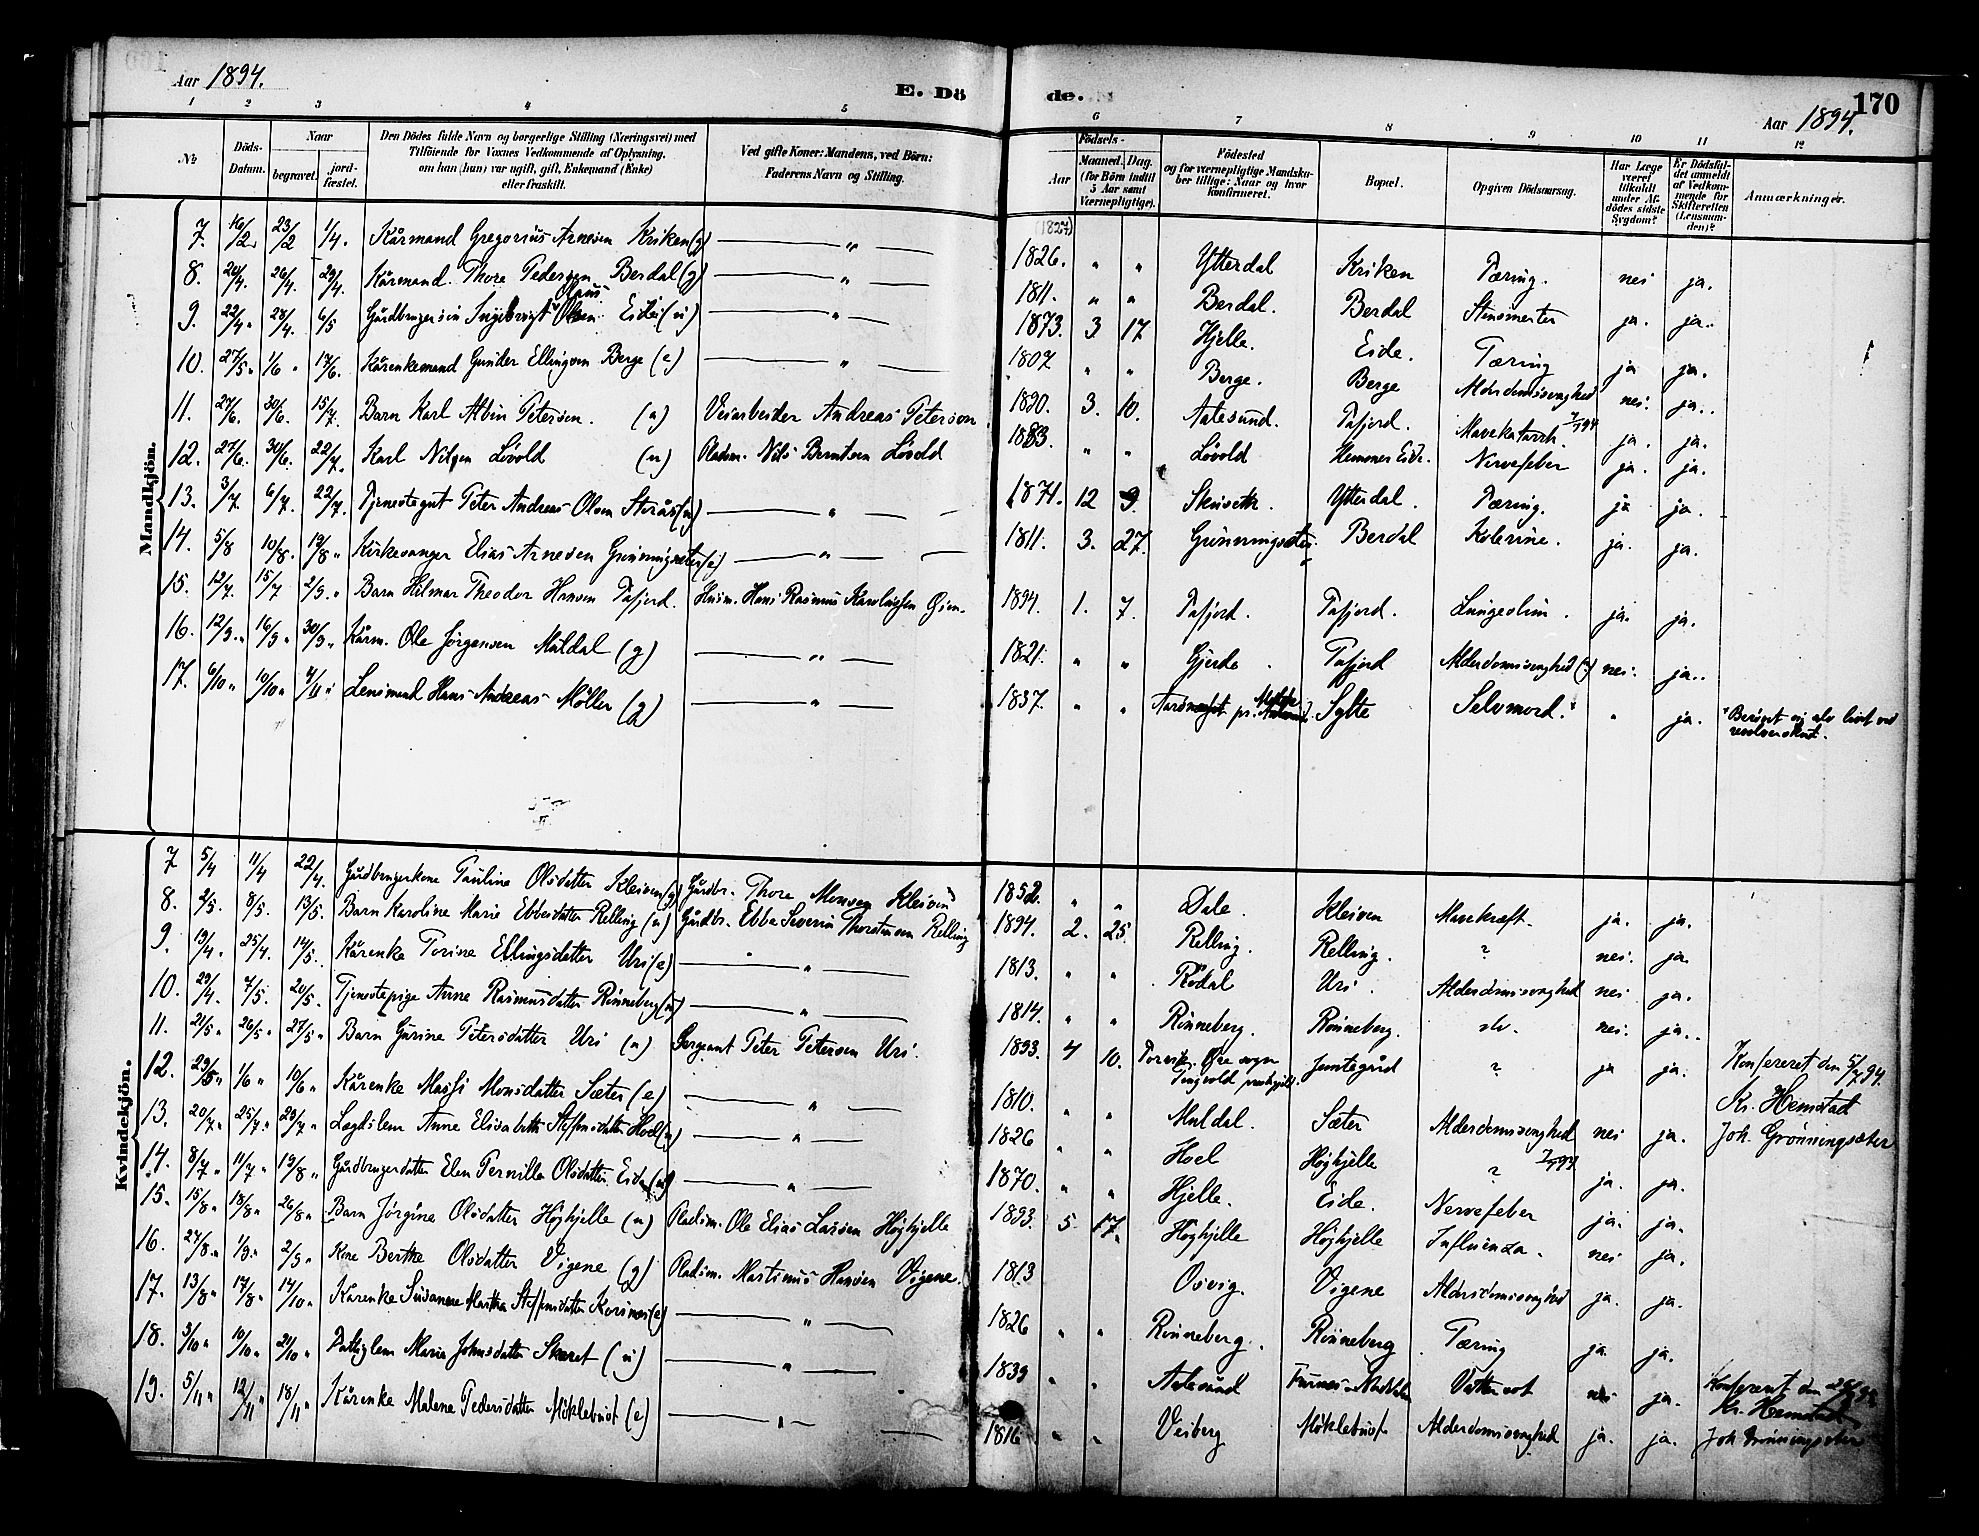 Aar 1894.
E. Dö
de.
170
Aar 1894.
1 2 3 4 5 6 7 8 9 10 11 12
No
Döds-Datum.
Naar
begravet.
jord-fæstet.
Den Dödes fulde Navn og borgerlige Stilling (Næringsvei) med
Tilföiende for Voxnes Vedkommende af Oplysning,
om han (hun) var ugift, gift, Enkemand (Enke)
eller fraskilt.
Ved gifte Koner: Mandens, ved Börn:
Faderens Navn og Stilling.
Födsels-
Aar
Maaned.
Dag.
(for Börn indtil
5 Aar samt
Værnepligtige).
Födested
og for værnepligtige Mandska-
ber tillige: Naar og hvor
konfirmeret.
Bopæl.
Opgiven Dödsaarsag.
Har Læge
været
tilkaldt
under Af-
dödes sidste
Sygdom?
Er Dödsfal-
det anmeldt
af Vedkom-
mende for
Skifteretten
(Lensman-
den)?
Anmærkninger.
Mandkjön.
(1827)
7. 19/2. 23/2 1/4. Kårmand Gregorius Arnesen Kriken (g) — " — 1826. " " Ytterdal Kriken Tæring. nei ja.
8. 20/4. 26/4. 29/4. Kårmand. Thore Pedersen Berdal (g) — " — 1811. " " Berdal. Berdal Stensmerter ja. ja..
9. 22/4. 28/4. 6/5 Gårdbrugersøn Ingebrigt Olaus Olsen Eide (u) — " — 1873. 3 17 Hjelle. Eide. Tæring ja ja.
10. 27/5. 1/6 " 17/6. Kårenkemand Gunder Ellingsen Berge (e) — " — 1807 " " Berge. Berge Alderdomssvaghed nei. ja..
11. 27/6. 30/6. 15/7. Barn Karl Albin Petersen. (u) Veiarbeider Andreas Peterson 1890. 3. 10. Aalesund. Tafjord. Mavekatarrh. ja. ja.
12. 27/6. 30/6. 22/7. Karl Nilsen Løvold (u) Pladsm. Nils Berntsen Løvold 1883. " " Løvold Nervefeber ja. ja.
13. 3/7. 6/7. 22/7. Tjenestegut Peter Andreas Olsen (u) — " — 1871. 12 9. Ytterdal. Tæring. ja ja.
14. 5/8 10/8. 19/8 " Kirkesanger Elias Arnesen Grønningsæter (e) — " — 1811. 3. 27. Grønningsæter. Berdal Kolerine. ja. ja.
15. 12/7. 15/7 2/9. " Barn Hilmar Theodor Hansen Tafjord. Husm. Hans Rasmus Øien. 1894. 1. 7. Tafjord. Tafjord. ja. ja.
16. 12/9. " 16/9 " 30/9 " Kårm. Ole Jørgensen Muldal (g) — " — 1821. " " Gjerde. Tafjord Alderdomssvaghed (?) nei. ja..
17. 6/10 " 10/10 " 4/11 " Lensmand Hans Andreas Møller (g) — " — 1837. " " pr. Molde Sylte Selvmord. * " ja. * Berøvet sig selv livet ved
revolverskud.
Kvindekjön.
7 5/4 11/4 22/4. Gårdbrugerkone Pauline Olsdatter Kleiven (g) Gårdbr. Thore Monsen Kleiven 1852. " " Dale. Kleiven Mavekræft. ja. ja.
8. 2/5. 8/5. 13/5. Barn Karoline Marie Ebbesdatter Relling (u) Gårdbr. Ebbe Severin Thorstensen Relling 1894. 2. 25. Relling. Relling. ? nei. ja.
9. 19/4. 25/4. 14/5. Kårenke Torine Ellingsdatter Uri (e) — " — 1813. " " Rødal Uri. Alderdomssvaghed nei ja.
10. 29/4. 7/5. 20/5. Tjenestepige Anne Rasmusdatter Rønneberg (u) — " — 1814. " " Rønneberg. Rønneberg. do. nei. ja..
11. 21/5 " 26/5 " 27/5 " Barn Gurine Petersdatter Uri (u) Sergeant Peter Petersen Uri. 1893. 4 10. Torvik. Øre sogn
Tingvold præstgjæld. Jemtegård ? ja ja. Konfereret den 5/7 94.
12. 29/5 " 1/6 " 10/6 " Kårenke Massi Monsdatter Sæter (e) — " — 1810. " " Muldal. Sæter Alderdomssvaghed nei ja. Kr. Hemstad
Joh. Grønningsæter
13. 20/7 " 25/7 " 29/7 " Lægdslem Anne Elisabeth Steffensdatter Hoel (u) — " — 1826 " " Hoel Høghjelle ? ja. ja.
14. 8/7 " 11/7 " 19/8 " Gårdbrugerdatter Elen Pernille Olsdatter Eide (u) — " — 1870. " " Hjelle. Eide. Nervefeber ja. ja.
15. 15/8 " 18/8 " 26/8 " Barn Jørgine Olsdatter Høghjelle (u) Pladsm. Ole Elias Larsen Høghjelle 1893. 5. 17. Høghjelle Høghjelle Influenza. nei ja.
16. 27/8 " 1/9 " 2/9 " Kone Berthe Olsdatter Vigene (g) Pladsm. Martinus Hansen Vigene. 1813 Osvig. Vigene Alderdomssvaghed ja. ja.
17. 13/8 " 17/8 " 14/10 " Kårenke Susanne Martha Steffensdatter Korsnes (e) — " — 1826 " " Rønneberg. Rønneberg Tæring ja. ja.
18. 3/10 " 10/10 " 21/10 " Fattiglem Marie Johnsdatter Skaret (u) — " — 1839 " " Aalesund Vattersot nei ja. Konfereret den
Kr. Hemstad
19. 5/11 " 12/11 " 18/11 " Kårenke Malene Pedersdatter Møklebust (e) — " — 1816 " " Veiberg Møklebust Alderdomssvaghed ja. ja. Joh Grønningsæter